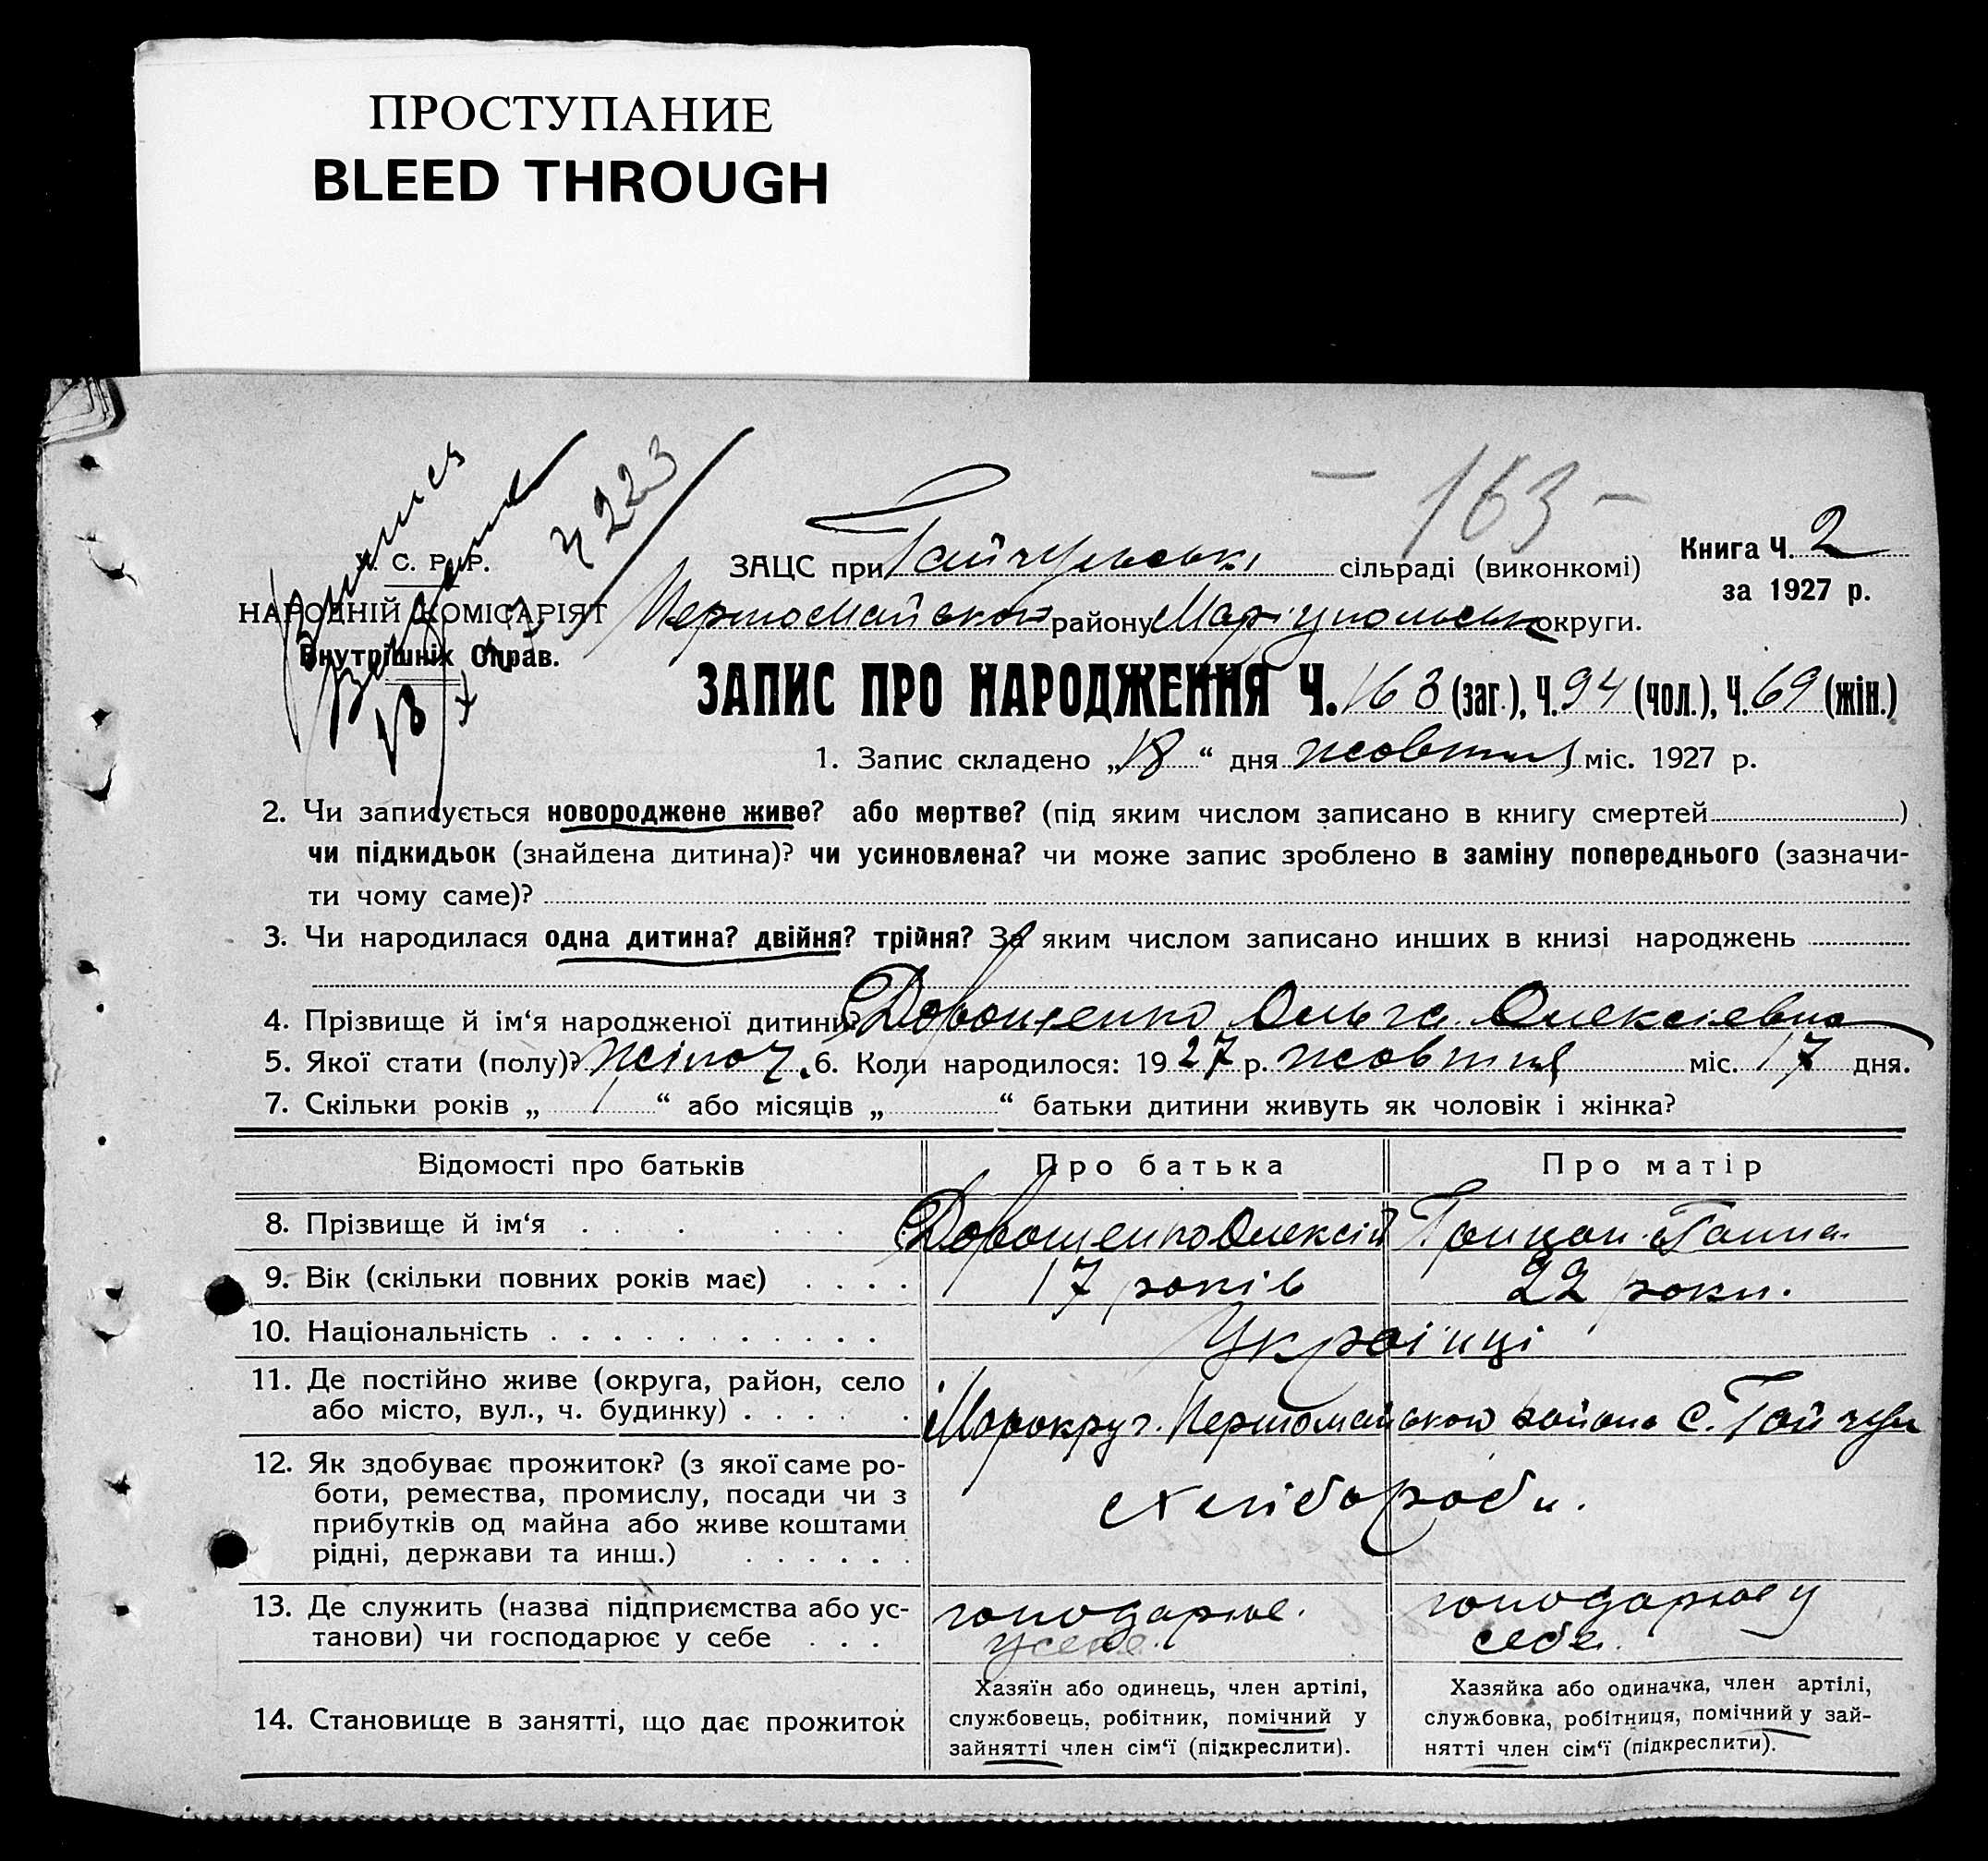 ПРОСТУПАНИЕ
BLEED THROUGH
- 163 -
Книга Ч. 2
за 1927 р.
У. С. Р. Р.
НАРОДНІЙ КОМІСАРІЯТ
Внутрішніх Справ.
ЗАЦС при Гайчульські сільраді (виконкомі)
Першомайского району Маріупольськ округи.
ЗАПИС ПРО НАРОДЖЕННЯ Ч. 163 (заг.), Ч. 94 (чол.), Ч. 69 (жін.)
1. Запис складено „18“ дня жовтня міс. 1927 р.
2. Чи записується новороджене живе? або мертве? (під яким числом записано в книгу смертей )
чи підкидьок (знайдена дитина)? чи усиновлена? чи може запис зроблено в заміну попереднього (зазначи-
ти чому саме)?
3. Чи народилася одна дитина? двійня? трійня? За яким числом записано инших в книзі народжень
4. Прізвище й ім‘я народженої дитини? Дорошенко Ольга Олексієвна
5. Якої стати (полу)? жіноч. 6. Коли народилося: 1927 р. жовтня міс. 17 дня.
7. Скільки років „ 1 “ або місяців „ “ батьки дитини живуть як чоловік і жінка?
Відомості про батьків Про батька Про матір
8. Прізвище й ім‘я . . . . . . Дорошенко Олексій Грицан Ганна
9. Вік (скільки повних років має) . . . . 17 років 22 роки.
10. Національність . . . . . . . . . . . Українці
11. Де постійно живе (округа, район, село
або місто, вул., ч. будинку) . . . . . Марокруг. Першомайского района с. Гайчул
12. Як здобуває прожиток? (з якої саме ро-
боти, ремества, промислу, посади чи з
прибутків од майна або живе коштами
рідні, держави та инш.) . . . . . .
хлібороби.
13. Де служить (назва підприємства або ус-
танови) чи господарює у себе . . .
господарює.
у себе.
господарює у
себе.
14. Становище в занятті, що дає прожиток
Хазяїн або одинець, член артілі,
службовець, робітник, помічний у
зайнятті член сім‘ї (підкреслити).
Хазяйка або одиначка, член артілі,
службовка, робітниця, помічний у зай-
нятті член сім‘ї (підкреслити).